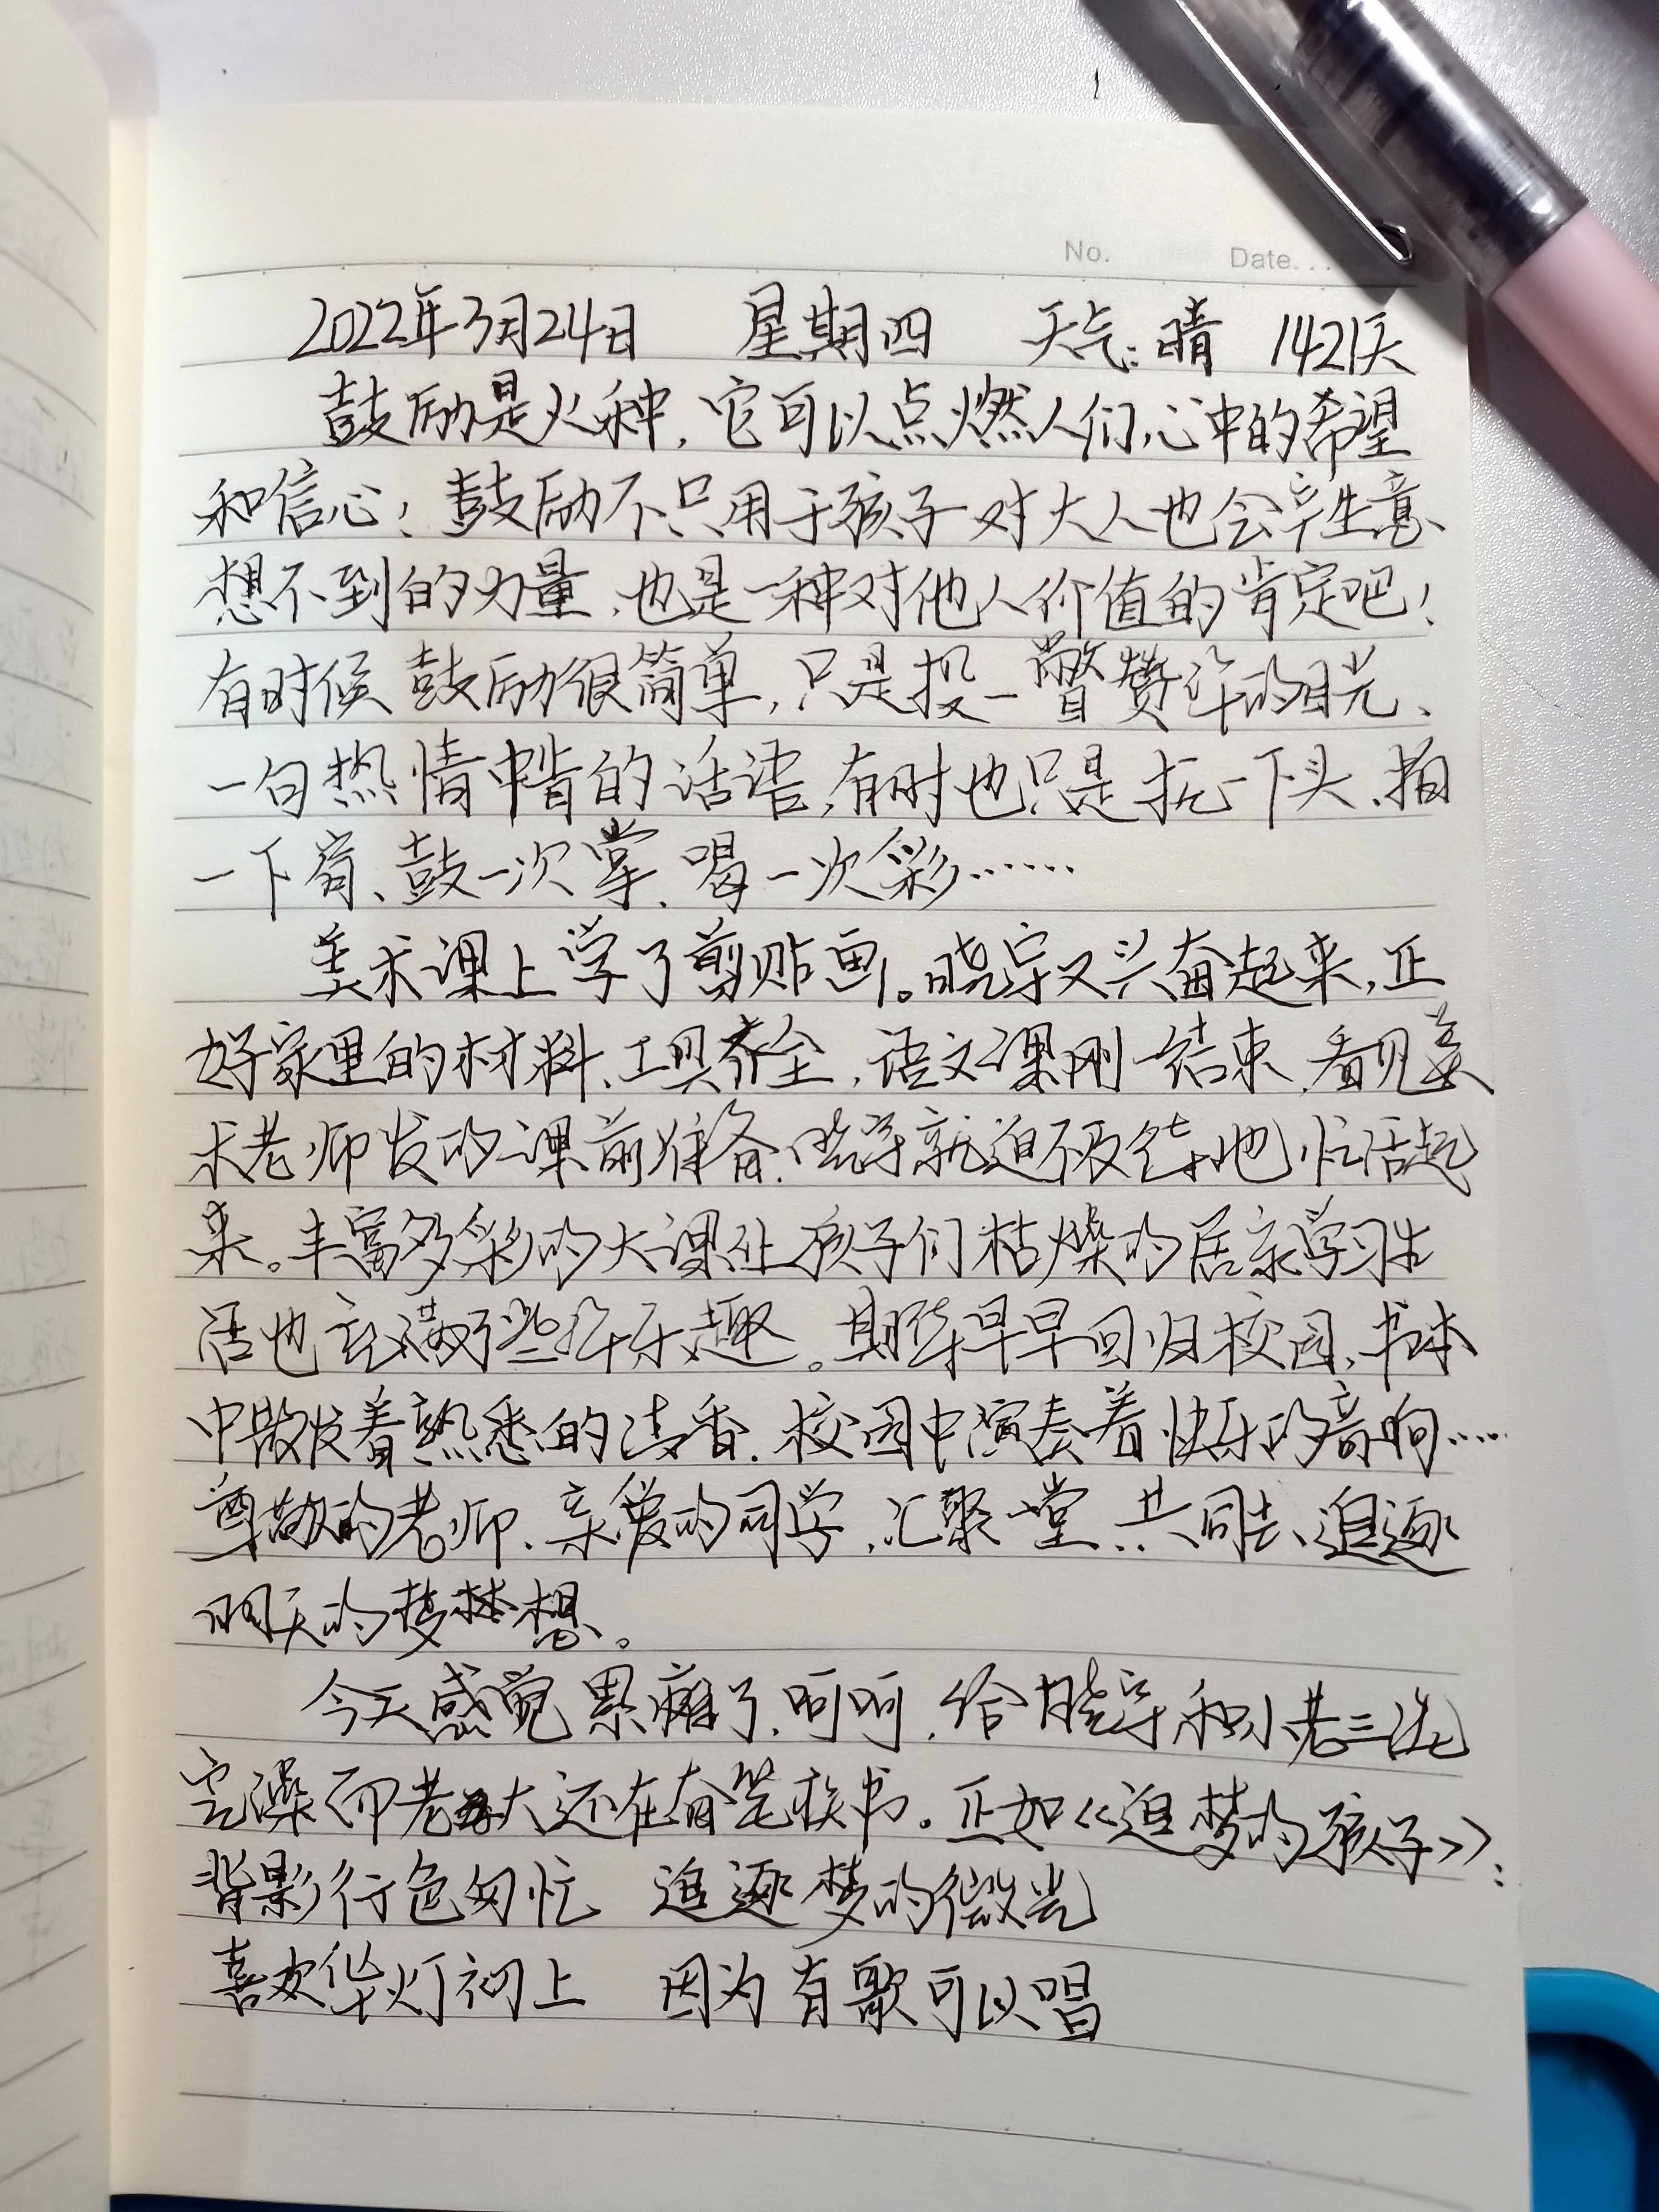 No. Date...
2022年3月24日 星期四 天气:晴 1421天
鼓励是火种,它可以点燃人们心中的希望
和信心!鼓励不只用于孩子 对大人也会产生意
想不到的力量,也是一种对他人价值的肯定吧!
有时候鼓励很简单,只是投一瞥赞许的目光、
一句热情中肯的话语,有时也只是抚一下头、拍
一下肩、鼓一次掌、喝一次彩……
美术课上学了剪贴画。晓宇又兴奋起来,正
好家里的材料、工具齐全,语文课刚一结束,看见美
术老师发的课前准备,晓宇就迫不及待地忙活起
来。丰富多彩的大课让孩子们枯燥的居家学习生
活也充满了些许乐趣。期待早早回归校园,书本
中散发着熟悉的清香,校园中演奏着快乐的音响……
尊敬的老师、亲爱的同学,汇聚一堂,共同去追逐
明天的梦想。
今天感觉累瘫了,呵呵,给晓宇和小老三洗
完澡 而老大还在奋笔疾书。正如《追梦的孩子》:
背影行色匆忙 追逐梦的微光
喜欢华灯初上 因为有歌可以唱